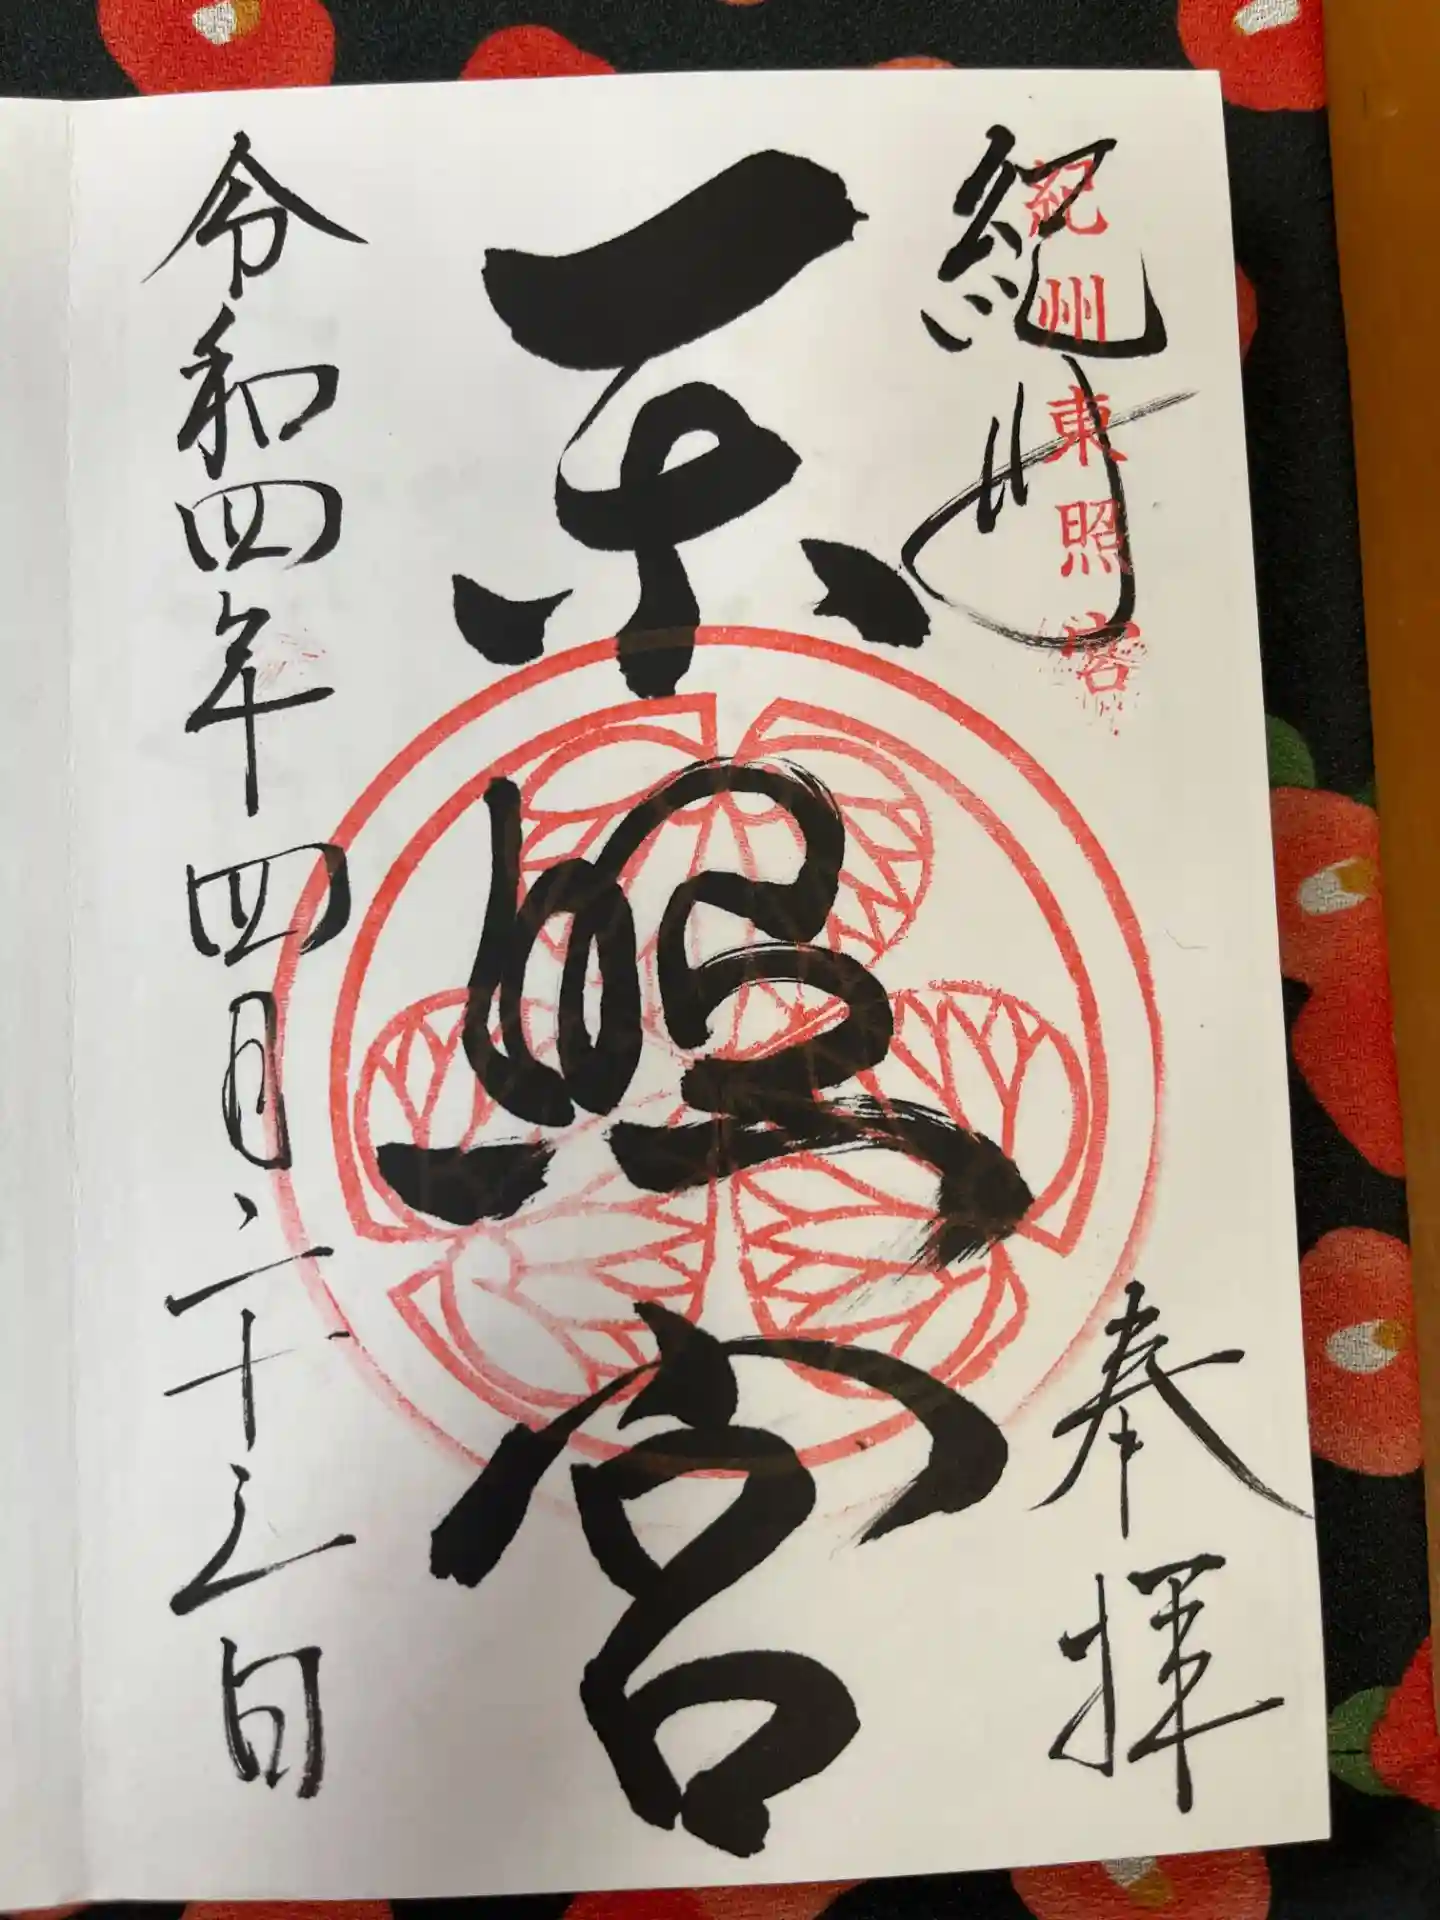 紀州
紀州東照宮
奉拝
東照宮
令和四年四月二十三日